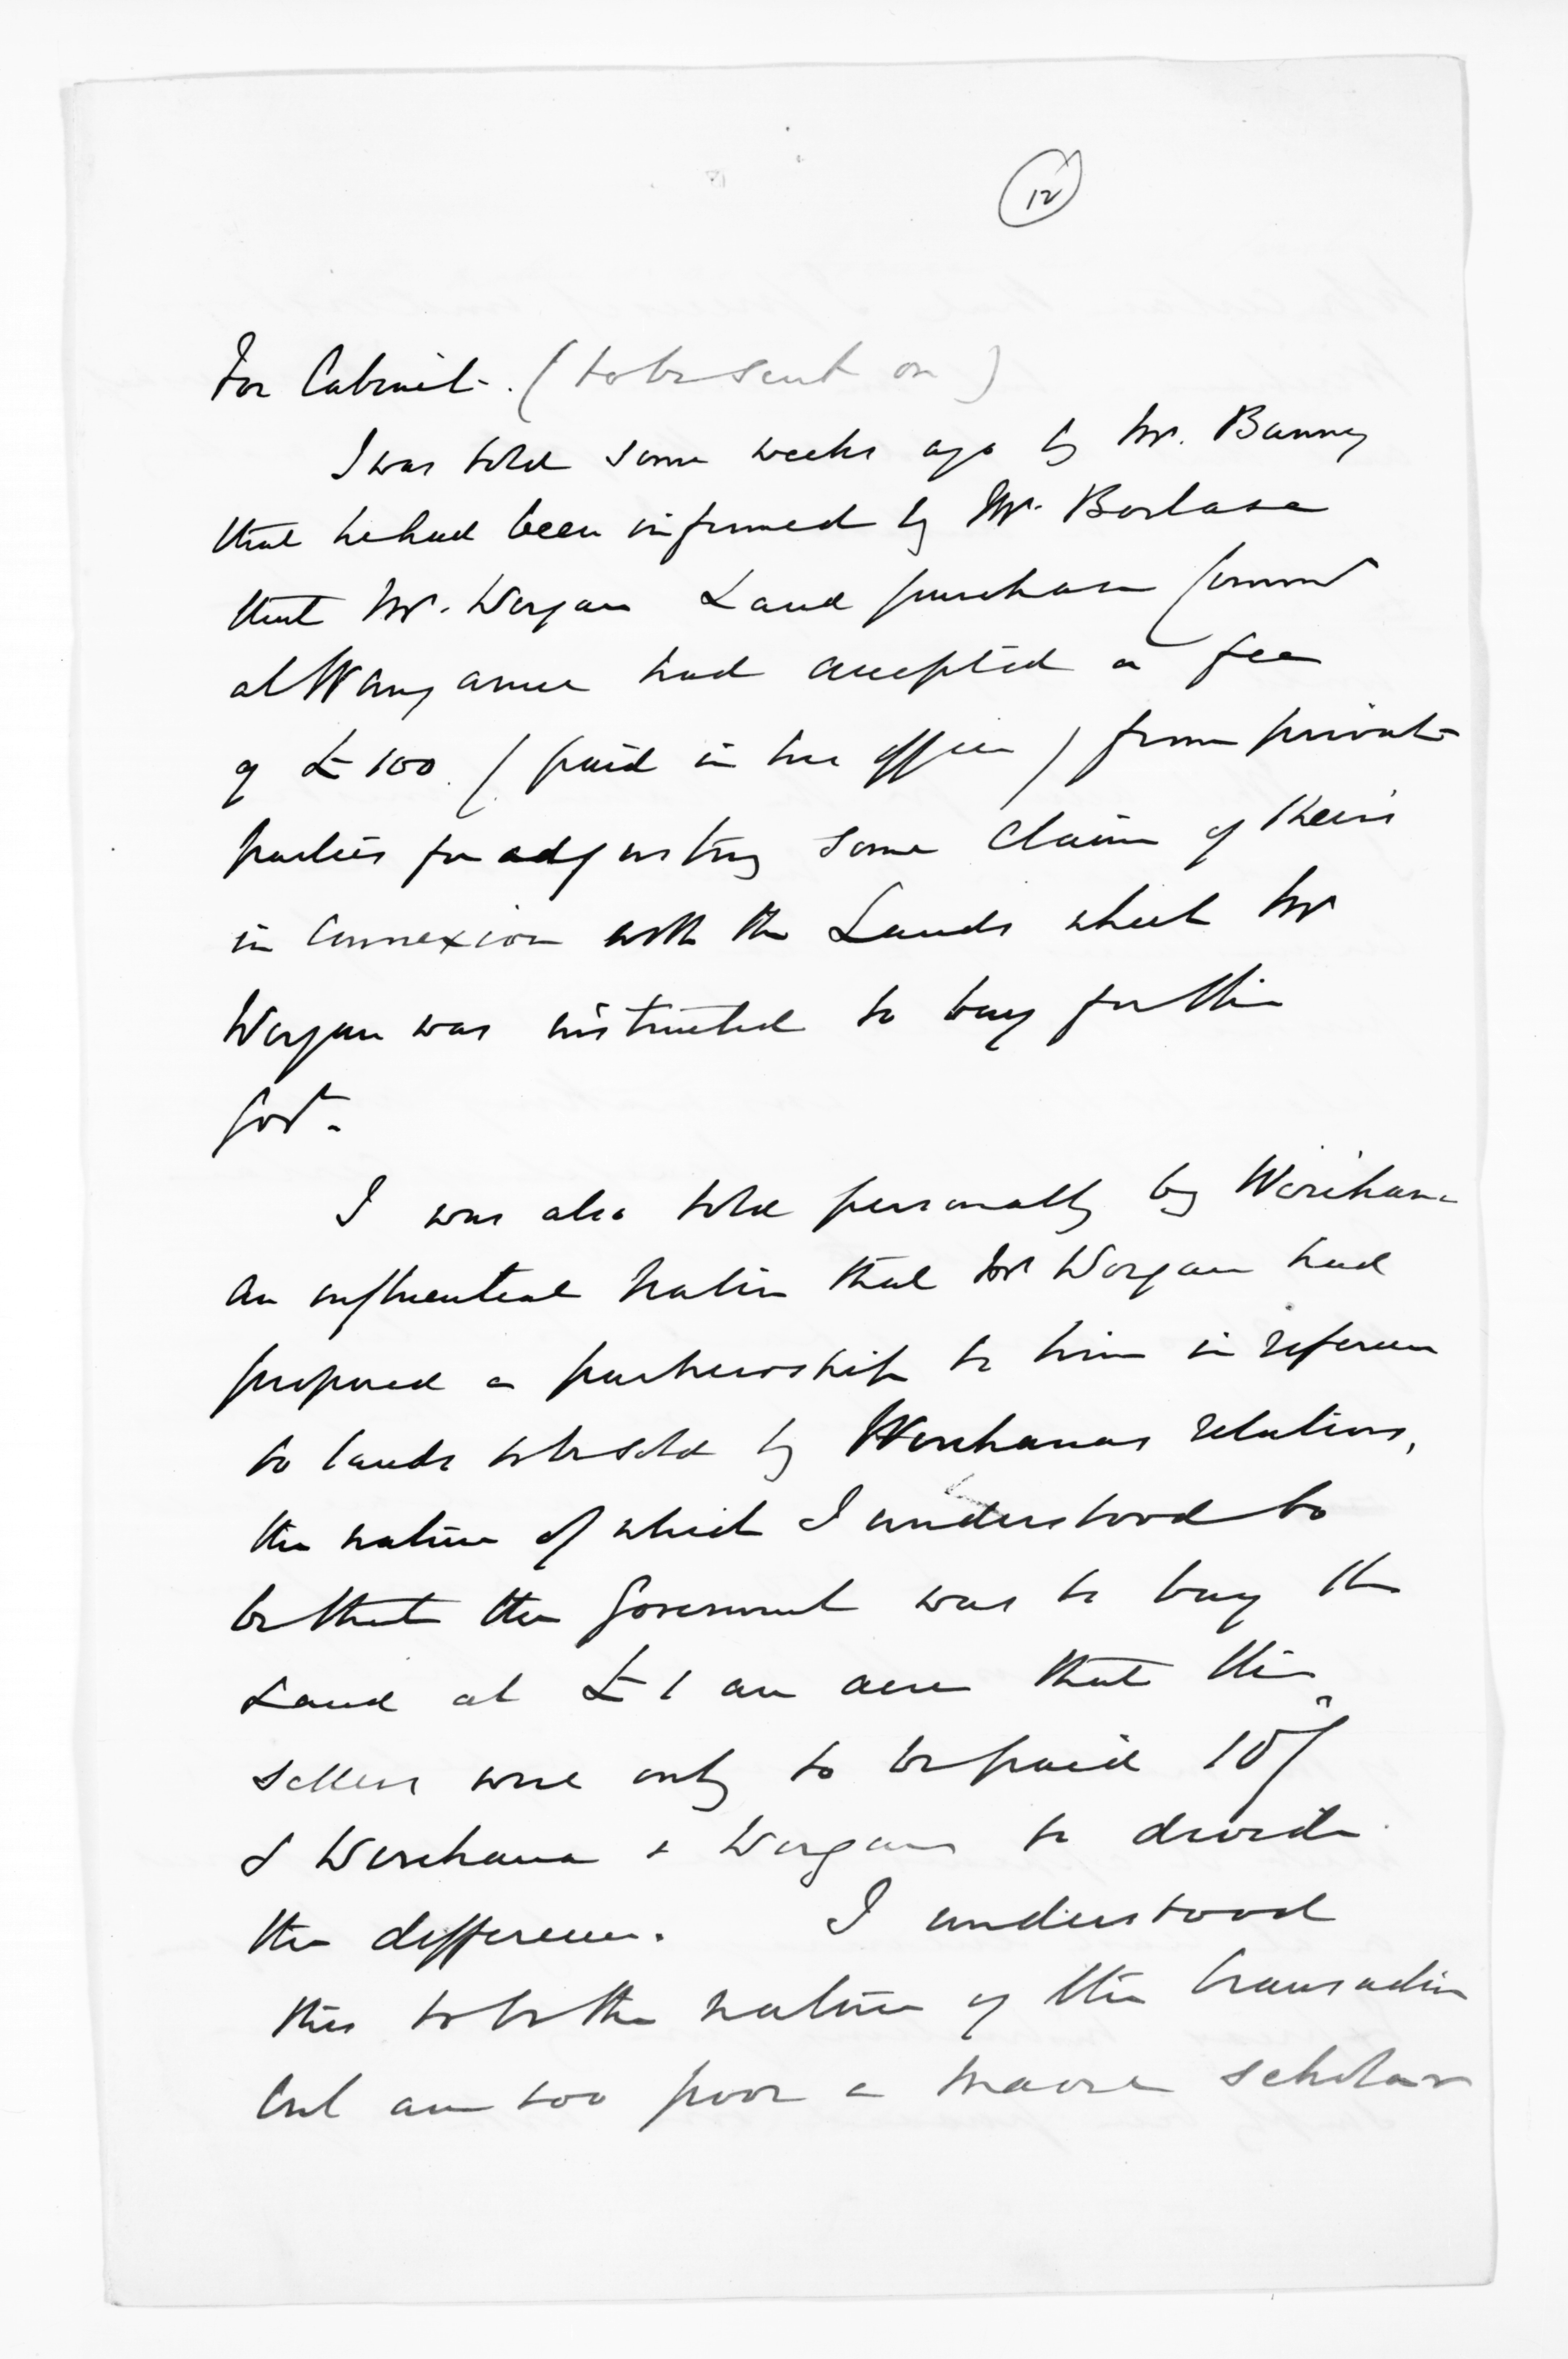 12
For Cabinet. (to be sent on)
I was told some weeks ago by Mr. Bunny
that he had been informed by Mr. Borlase
that Mr. Worgan Land purchase Commr
at Wanganui had accepted a fee
of £100. (paid in his office) from private
parties for adjusting some claim of theirs
in connexion with the Lands which Mr
Worgan was instructed to buy for the
Govt.
I was also told personally by Wirihana
an influential native that Mr Worgan had
proposed a partnership to him in reference
to lands to be sold by Wirihanas relations,
the nature of which I understood to
be that the Government was to buy the
Land at £1 an acre that the
sellers were only to be paid 10/
& Wirihana & Worgan to divide
the difference. I understood
this to be the nature of the transaction
but am too poor a maori scholar